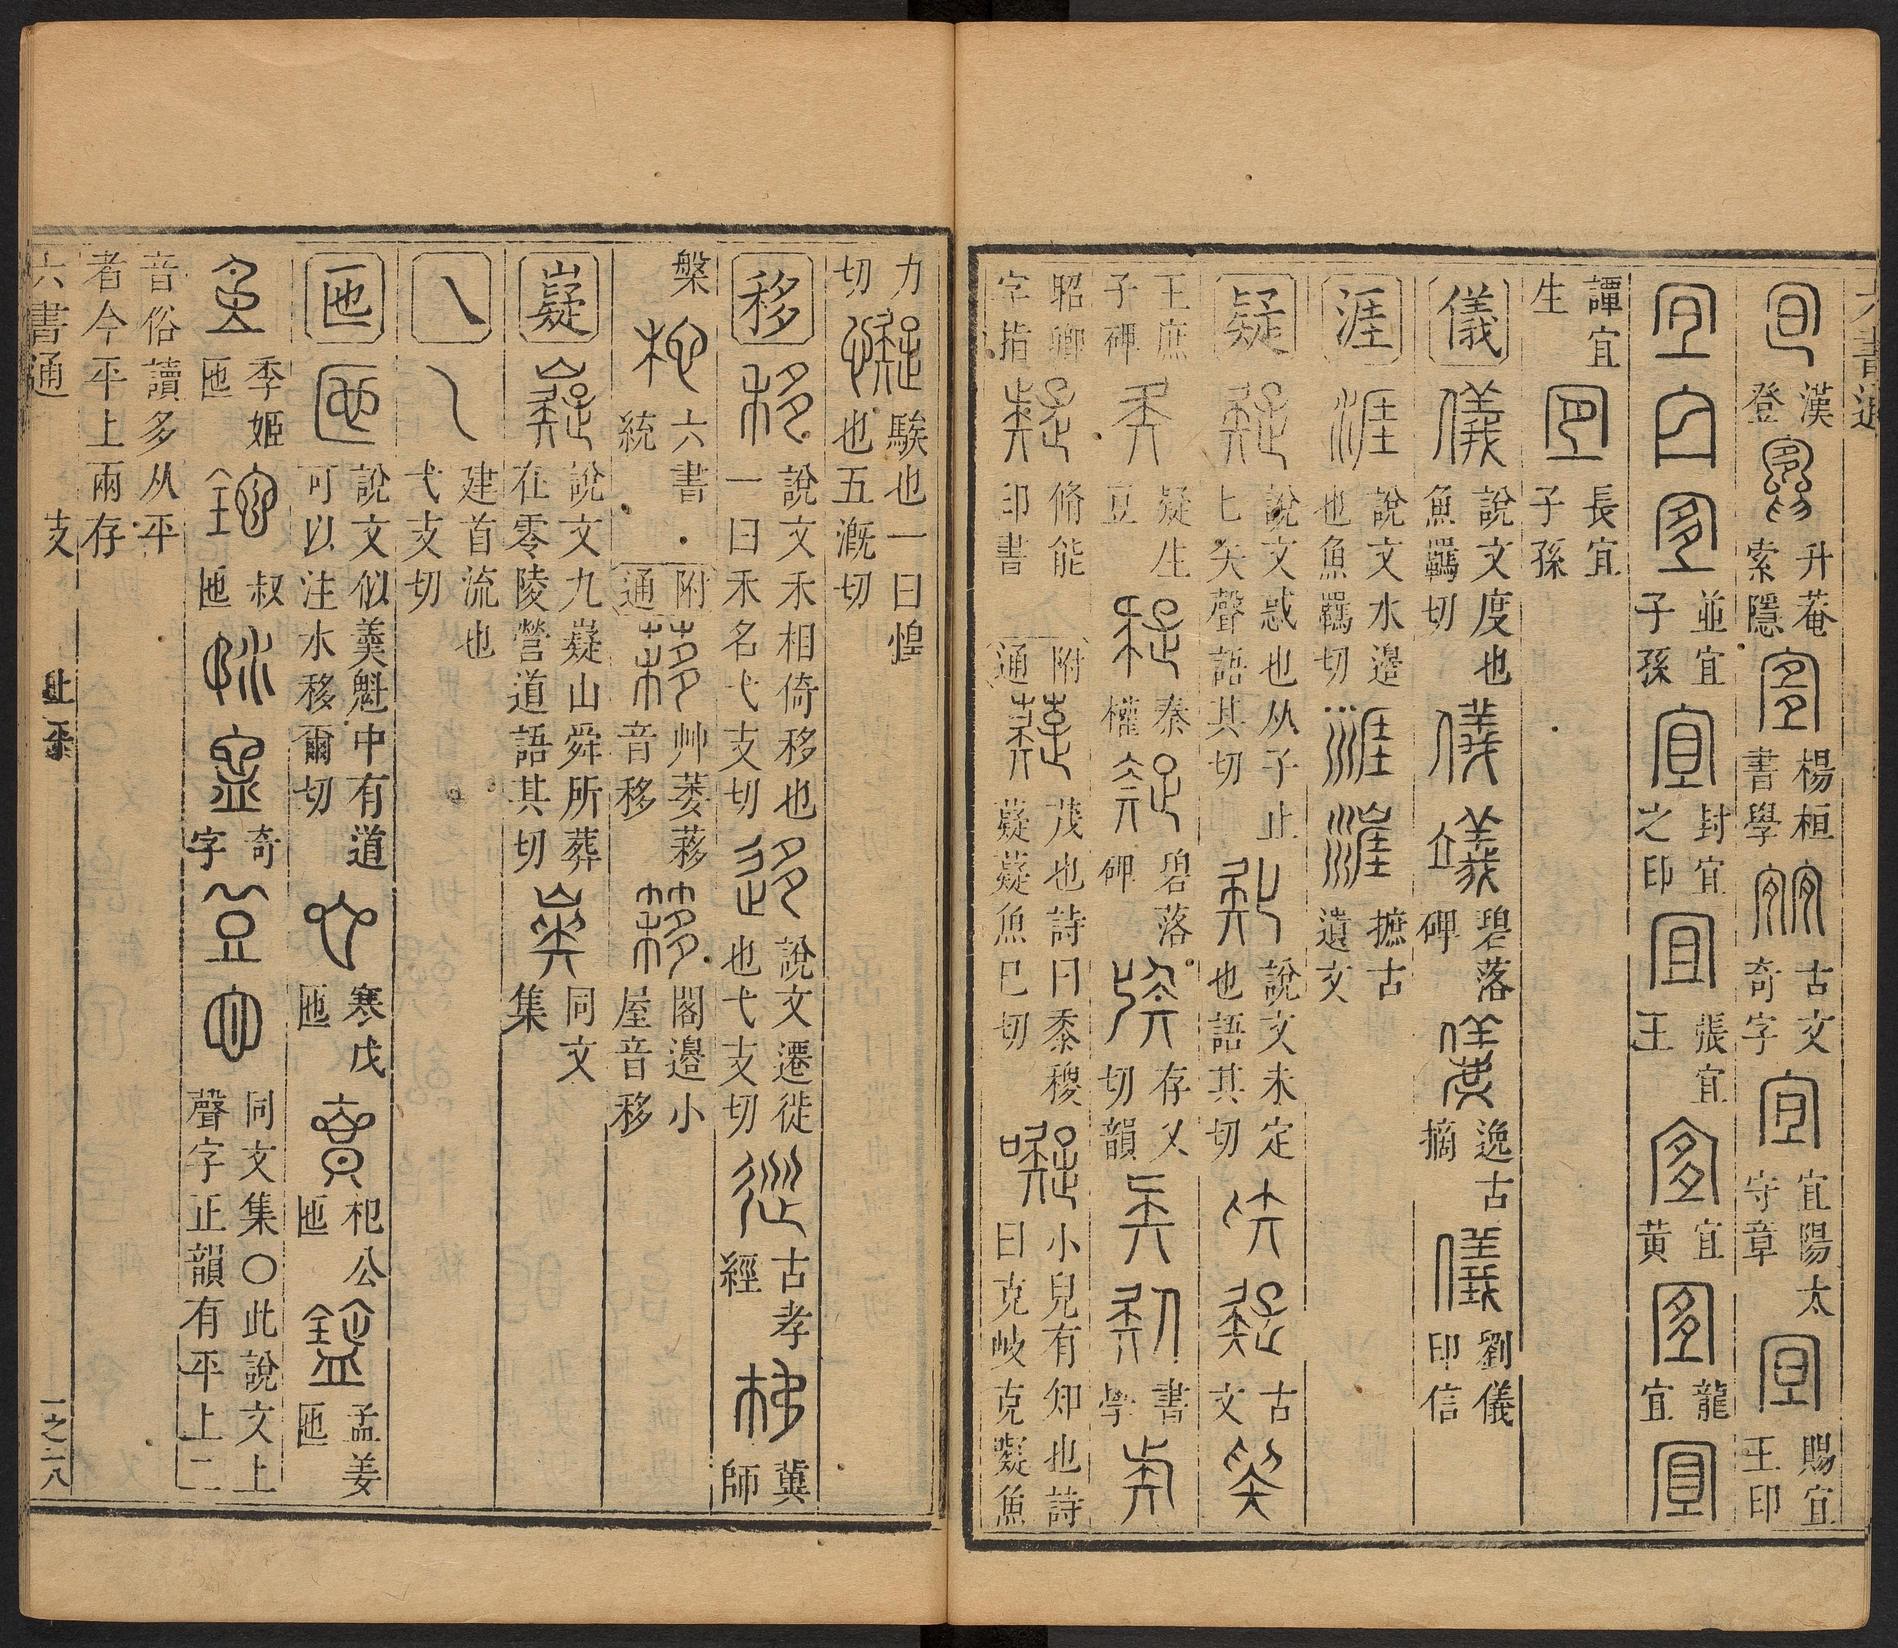 漢登 升菴索隱 楊桓書學 古文奇字 宜陽太守章 賜宜王印
並宜子孫 封宜之印 張宜王 宜黃 龍宜
譚宜生 長宜子孫
儀 說文度也魚羈切 碧落碑 逸古摘 劉儀印信
涯 說文水邊也魚羈切 摭古遺文
疑 說文惑也从子止匕矢聲語其切 說文未定也語其切 古文
王庶子碑 疑生豆 秦權 碧落碑 存乂切韻 書學
昭卿字指 脩能印書 附通 茂也詩曰黍稷薿薿魚巳切 小兒有知也詩曰克岐克嶷魚
力切 騃也一曰惶也五溉切
移 說文禾相倚移也一曰禾名弋支切 說文遷徙也弋支切 古孝經 冀師
槃 六書統 附通 艸萎蓩音移 閣邉小屋音移
嶷 說文九嶷山舜所葬在零陵營道語其切 同文集
乁 建首流也弋支切
匜 說文似羹魁中有道可以注水移爾切 寒戊匜 杞公匜 孟姜匜
季姬匜 叔匜 奇字 同文集〇此說文上聲字正韻有平上二
音俗讀多从平
者今平上兩存
六書通 支 上平 一之二八